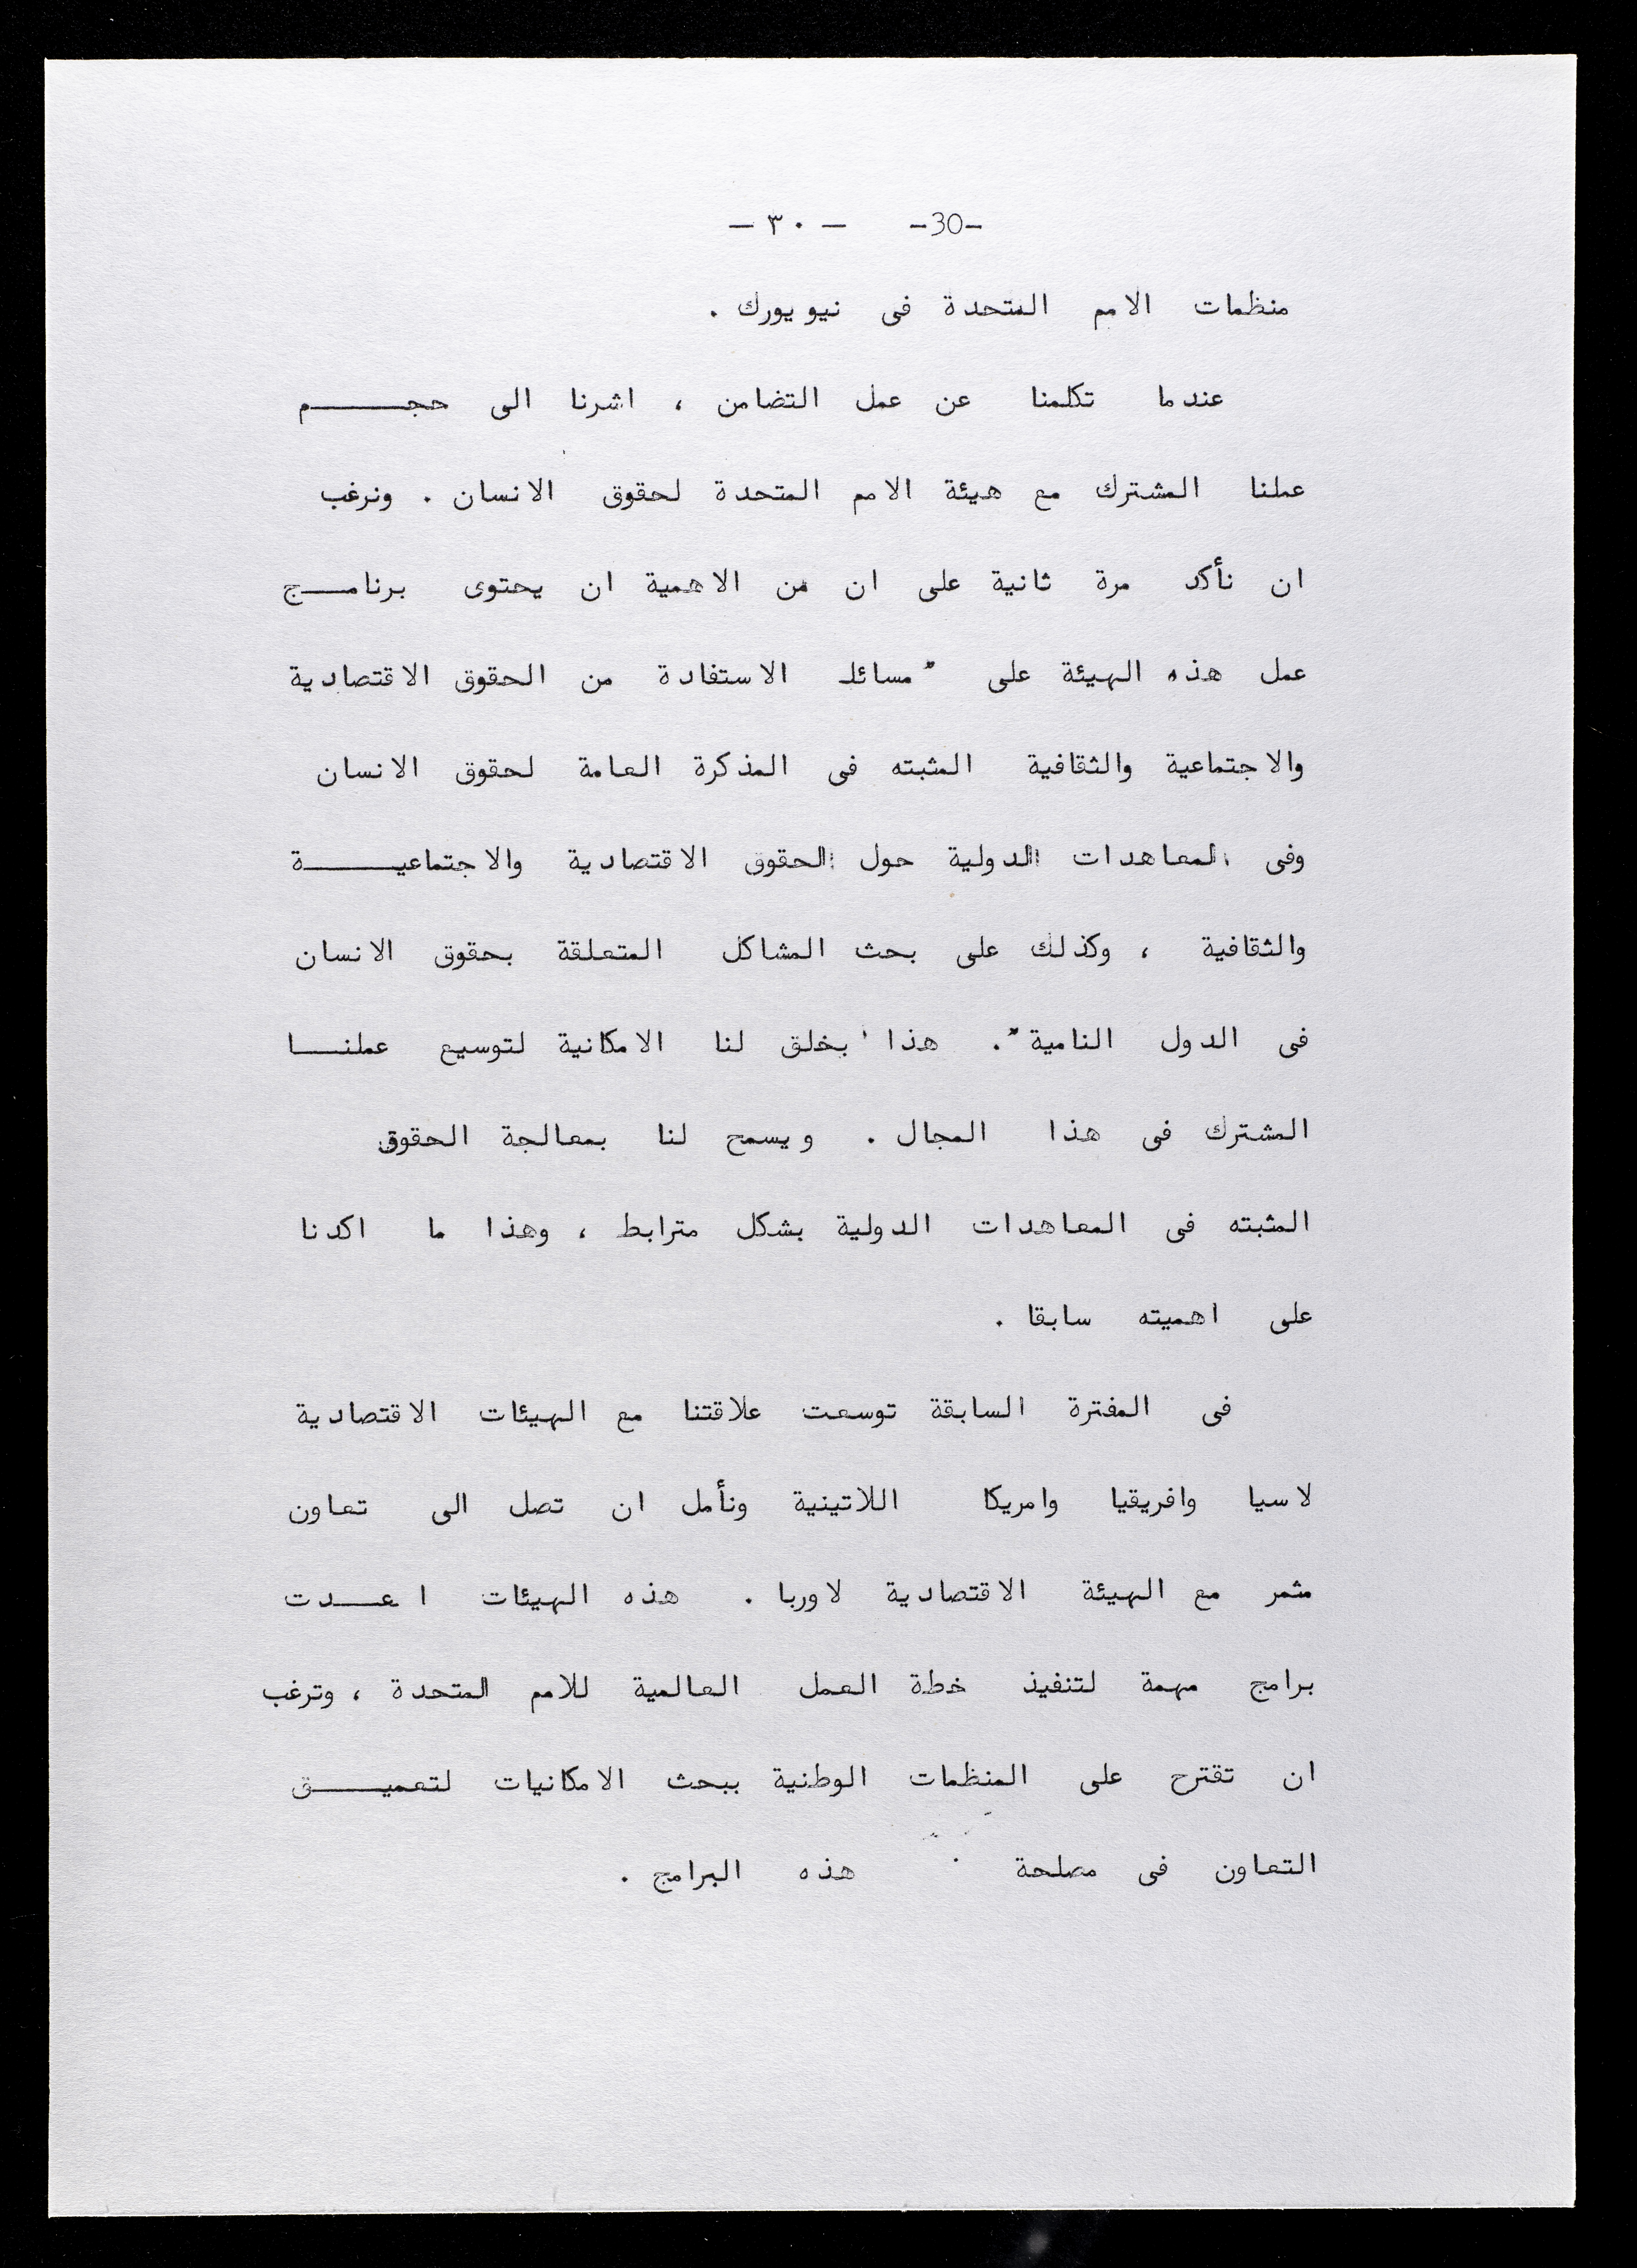 -30- - ٣٠ -
منظمات الامم المتحدة فى نيويورك .
عندما تكلمنا عن عمل التضامن ، اشرنا الى حجـــــم
عملنا المشترك مع هيئة الامم المتحدة لحقوق الانسان . ونرغب
ان نأكد مرة ثانية على ان من الاهمية ان يحتوى برنامـــج
عمل هذه الهيئة على "مسائل الاستفادة من الحقوق الاقتصادية
والاجتماعية والثقافية المثبته فى المذكرة العامة لحقوق الانسان
وفى المعاهدات الدولية حول الحقوق الاقتصادية والاجتماعيـــــة
والثقافية ، وكذلك على بحث المشاكل المتعلقة بحقوق الانسان
فى الدول النامية". هذا يخلق لنا الامكانية لتوسيع عملنـــا
المشترك فى هذا المجال . ويسمح لنا بمعالجة الحقوق
المثبته فى المعاهدات الدولية بشكل مترابط ، وهذا ما اكدنا
على اهميته سابقا .
فى المفترة السابقة توسعت علاقتنا مع الهيئات الاقتصادية
لاسيا وافريقيا وامريكا اللاتينية ونأمل ان تصل الى تعاون
مثمر مع الهيئة الاقتصادية لاوربا . هذه الهيئات اعـــدت
برامج مهمة لتنفيذ خطة العمل العالمية للامم المتحدة ، وترغب
ان تقترح على المنظمات الوطنية ببحث الامكانيات لتعميـــــق
التعاون فى مصلحة هذه البرامج .